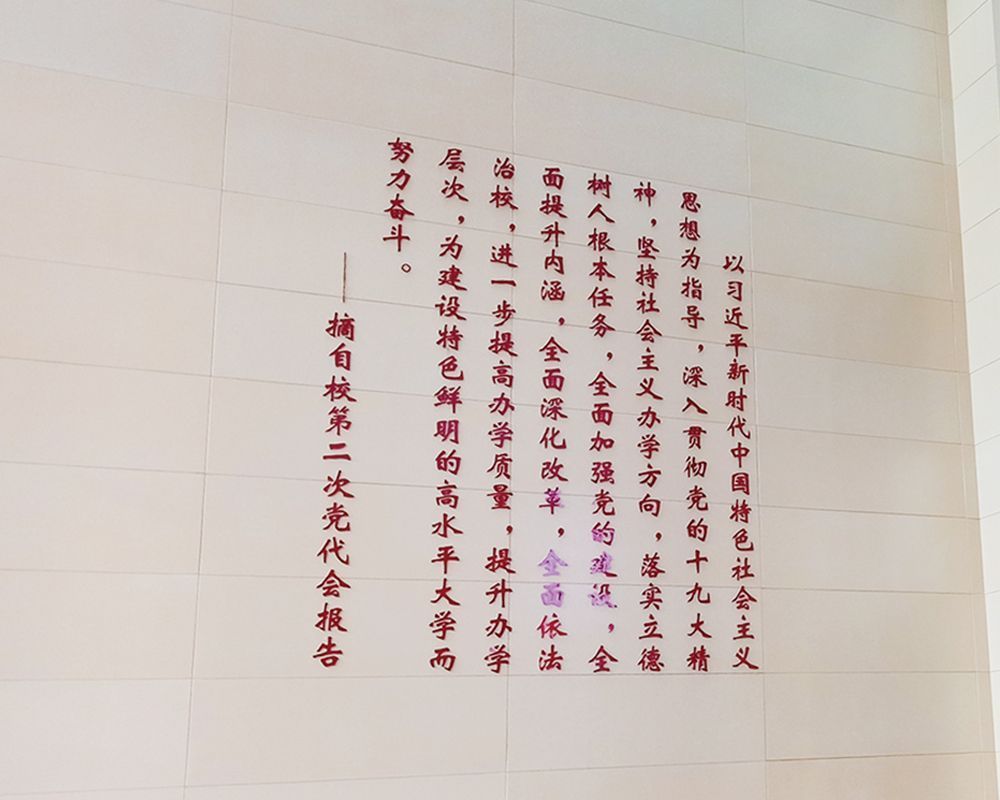 以习近平新时代中国特色社会主义
思想为指导，深入贯彻党的十九大精
神，坚持社会主义办学方向，落实立德
树人根本任务，全面加强党的建设，全
面提升内涵，全面深化改革，全面依法
治校，进一步提高办学质量，提升办学
层次，为建设特色鲜明的高水平大学而
努力奋斗。
——摘自校第二次党代会报告